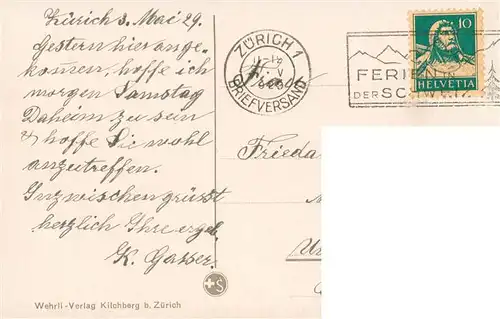 Zürich 3. Mai 29.
Gestern hier ange-
kommen, hoffe ich
morgen Samstag
Daheim zu sein
& hoffe Sie wohl
anzutreffen.
Inzwischen grüsst
herzlich Ihre ergeb.
K. Gasser.
Wehrli-Verlag Kilchberg b. Zürich
+S
ZÜRICH 1
BRIEFVERSAND
FERIEN IN
DER SCHWEIZ
10
HELVETIA
Frieda